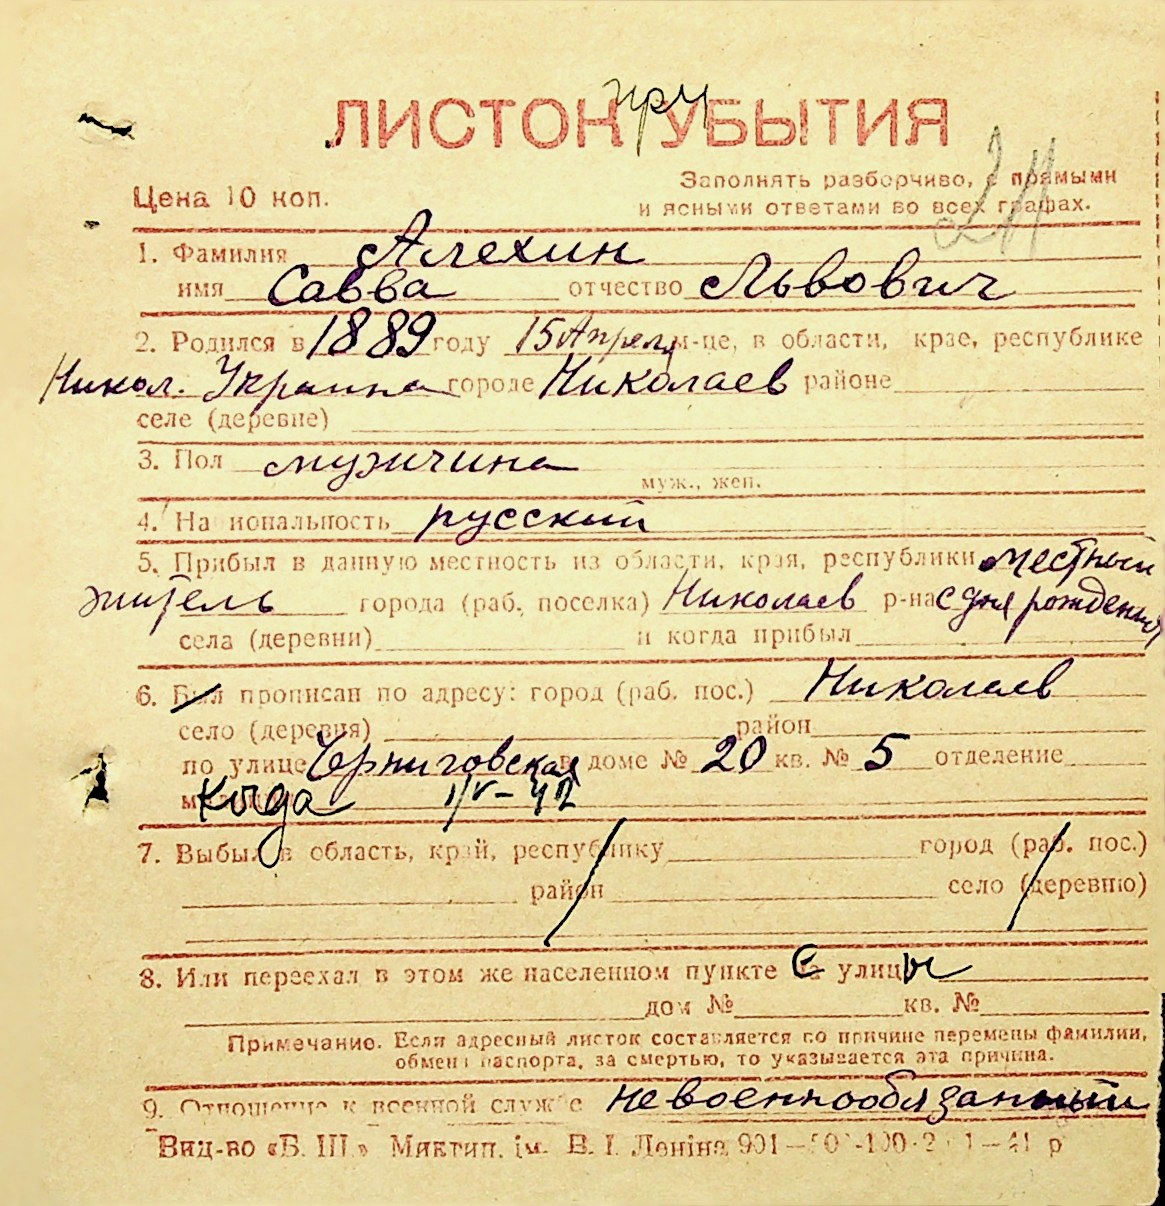 ЛИСТОК при УБЫТИЯ
24
Цена 10 коп.
Заполнять разборчиво, с прямыми
и ясными ответами во всех графах.
1. Фамилия Алехин
имя Савва отчество Львович
2. Родился в 1889 году 15 Апреля м-це, в области, крае, республике
Никол. Украина городе Николаев районе
селе (деревне)
3. Пол мужчина
муж., жен.
4. Национальность русский
5. Прибыл в данную местность из области, края, республики местный
житель города (раб. поселка) Николаев р-на с дня рождения
села (деревни) и когда прибыл
6. Был прописан по адресу: город (раб. пос.) Николаев
село (деревня) район
по улице Черниговская в доме № 20 кв. № 5 отделение
Когда 1/V-42
7. Выбыл в область, край, республику город (раб. пос.)
район село (деревню)
8. Или переехал в этом же населенном пункте с улицы
дом № кв. №
Примечание. Если адресный листок составляется по причине перемены фамилии,
обмена паспорта, за смертью, то указывается эта причина.
9. Отношение к военной службе невоеннообязанный
Вид-во «Б. Ш.» Миктип. ім. В. І. Леніна 901